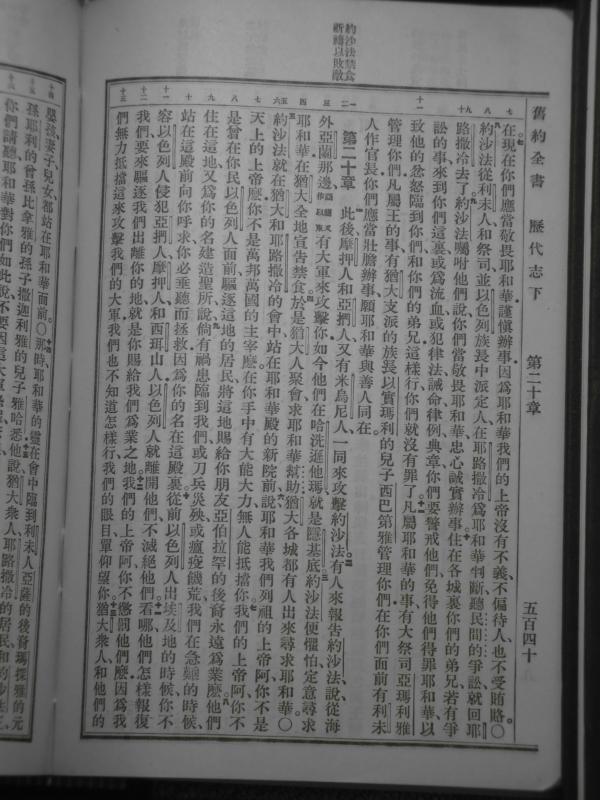 舊約全書 歷代志下 第二十章 五百四十
約沙法禁食
祈禱以敗敵
在現在你們應當敬畏耶和華謹愼辦事因爲耶和華我們的上帝沒有不義、不偏待人也不受賄賂。〇
約沙法從利未人和祭司並以色列族長中派定人在耶路撒冷爲耶和華判斷聽民間的爭訟就回耶
路撒冷去了約沙法囑咐他們說你們當敬畏耶和華忠心誠實辦事住在各城裏你們的弟兄若有爭
訟的事來到你們這裏或爲流血或犯律法誡命律例典章你們要警戒他們免得他們得罪耶和華以
致他的忿怒臨到你們和你們的弟兄這樣行你們就沒有罪了凡屬耶和華的事有大祭司亞瑪利雅
管理你們凡屬王的事有猶大支派的族長以實瑪利的兒子西巴第雅管理你們在你們面前有利未
人作官長你們應當壯膽辦事願耶和華與善人同在。
第二十章 此後摩押人和亞捫人又有米烏尼人一同來攻擊約沙法有人來報告約沙法說從海
外亞蘭那邊亞蘭又作以東有大軍來攻擊你如今他們在哈洗遜他瑪就是隱基底約沙法便懼怕定意尋求
耶和華在猶大全地宣告禁食於是猶大人聚會求耶和華幫助猶大各城都有人出來尋求耶和華〇
約沙法就在猶大和耶路撒冷的會中站在耶和華殿的新院前說耶和華我們列祖的上帝阿你不是
天上的上帝麽你不是萬邦萬國的主宰麽在你手中有大能大力無人能抵擋你我們的上帝阿你不
是曾在你民以色列人面前驅逐這地的居民將這地賜給你朋友亞伯拉罕的後裔永遠爲業麽他們
住在這地又爲你的名建造聖所說倘有禍患臨到我們或刀兵災殃或瘟疫饑荒我們在急難的時候
站在這殿前向你呼求你必垂聽而拯救因爲你的名在這殿裏從前以色列人出埃及地的時候你不
容以色列人侵犯亞捫人摩押人和西珥山人以色列人就離開他們不滅絕他們看哪他們怎樣報復
我們要來驅逐我們出離你的地就是你賜給我們爲業之地我們的上帝阿你不懲罰他們麽因爲我
們無力抵擋這來攻擊我們的大軍我們也不知道怎樣行我們的眼目單仰望你猶大衆人和他們的
嬰孩妻子兒女都站在耶和華面前〇那時耶和華的靈在會中臨到利未人亞薩的後裔瑪探雅的元
孫耶利的曾孫比拿雅的孫子撒迦利雅的兒子雅哈悉他說猶大衆人耶路撒冷的居民和約沙法王
你們請聽耶和華對你們如此說不要因這大軍